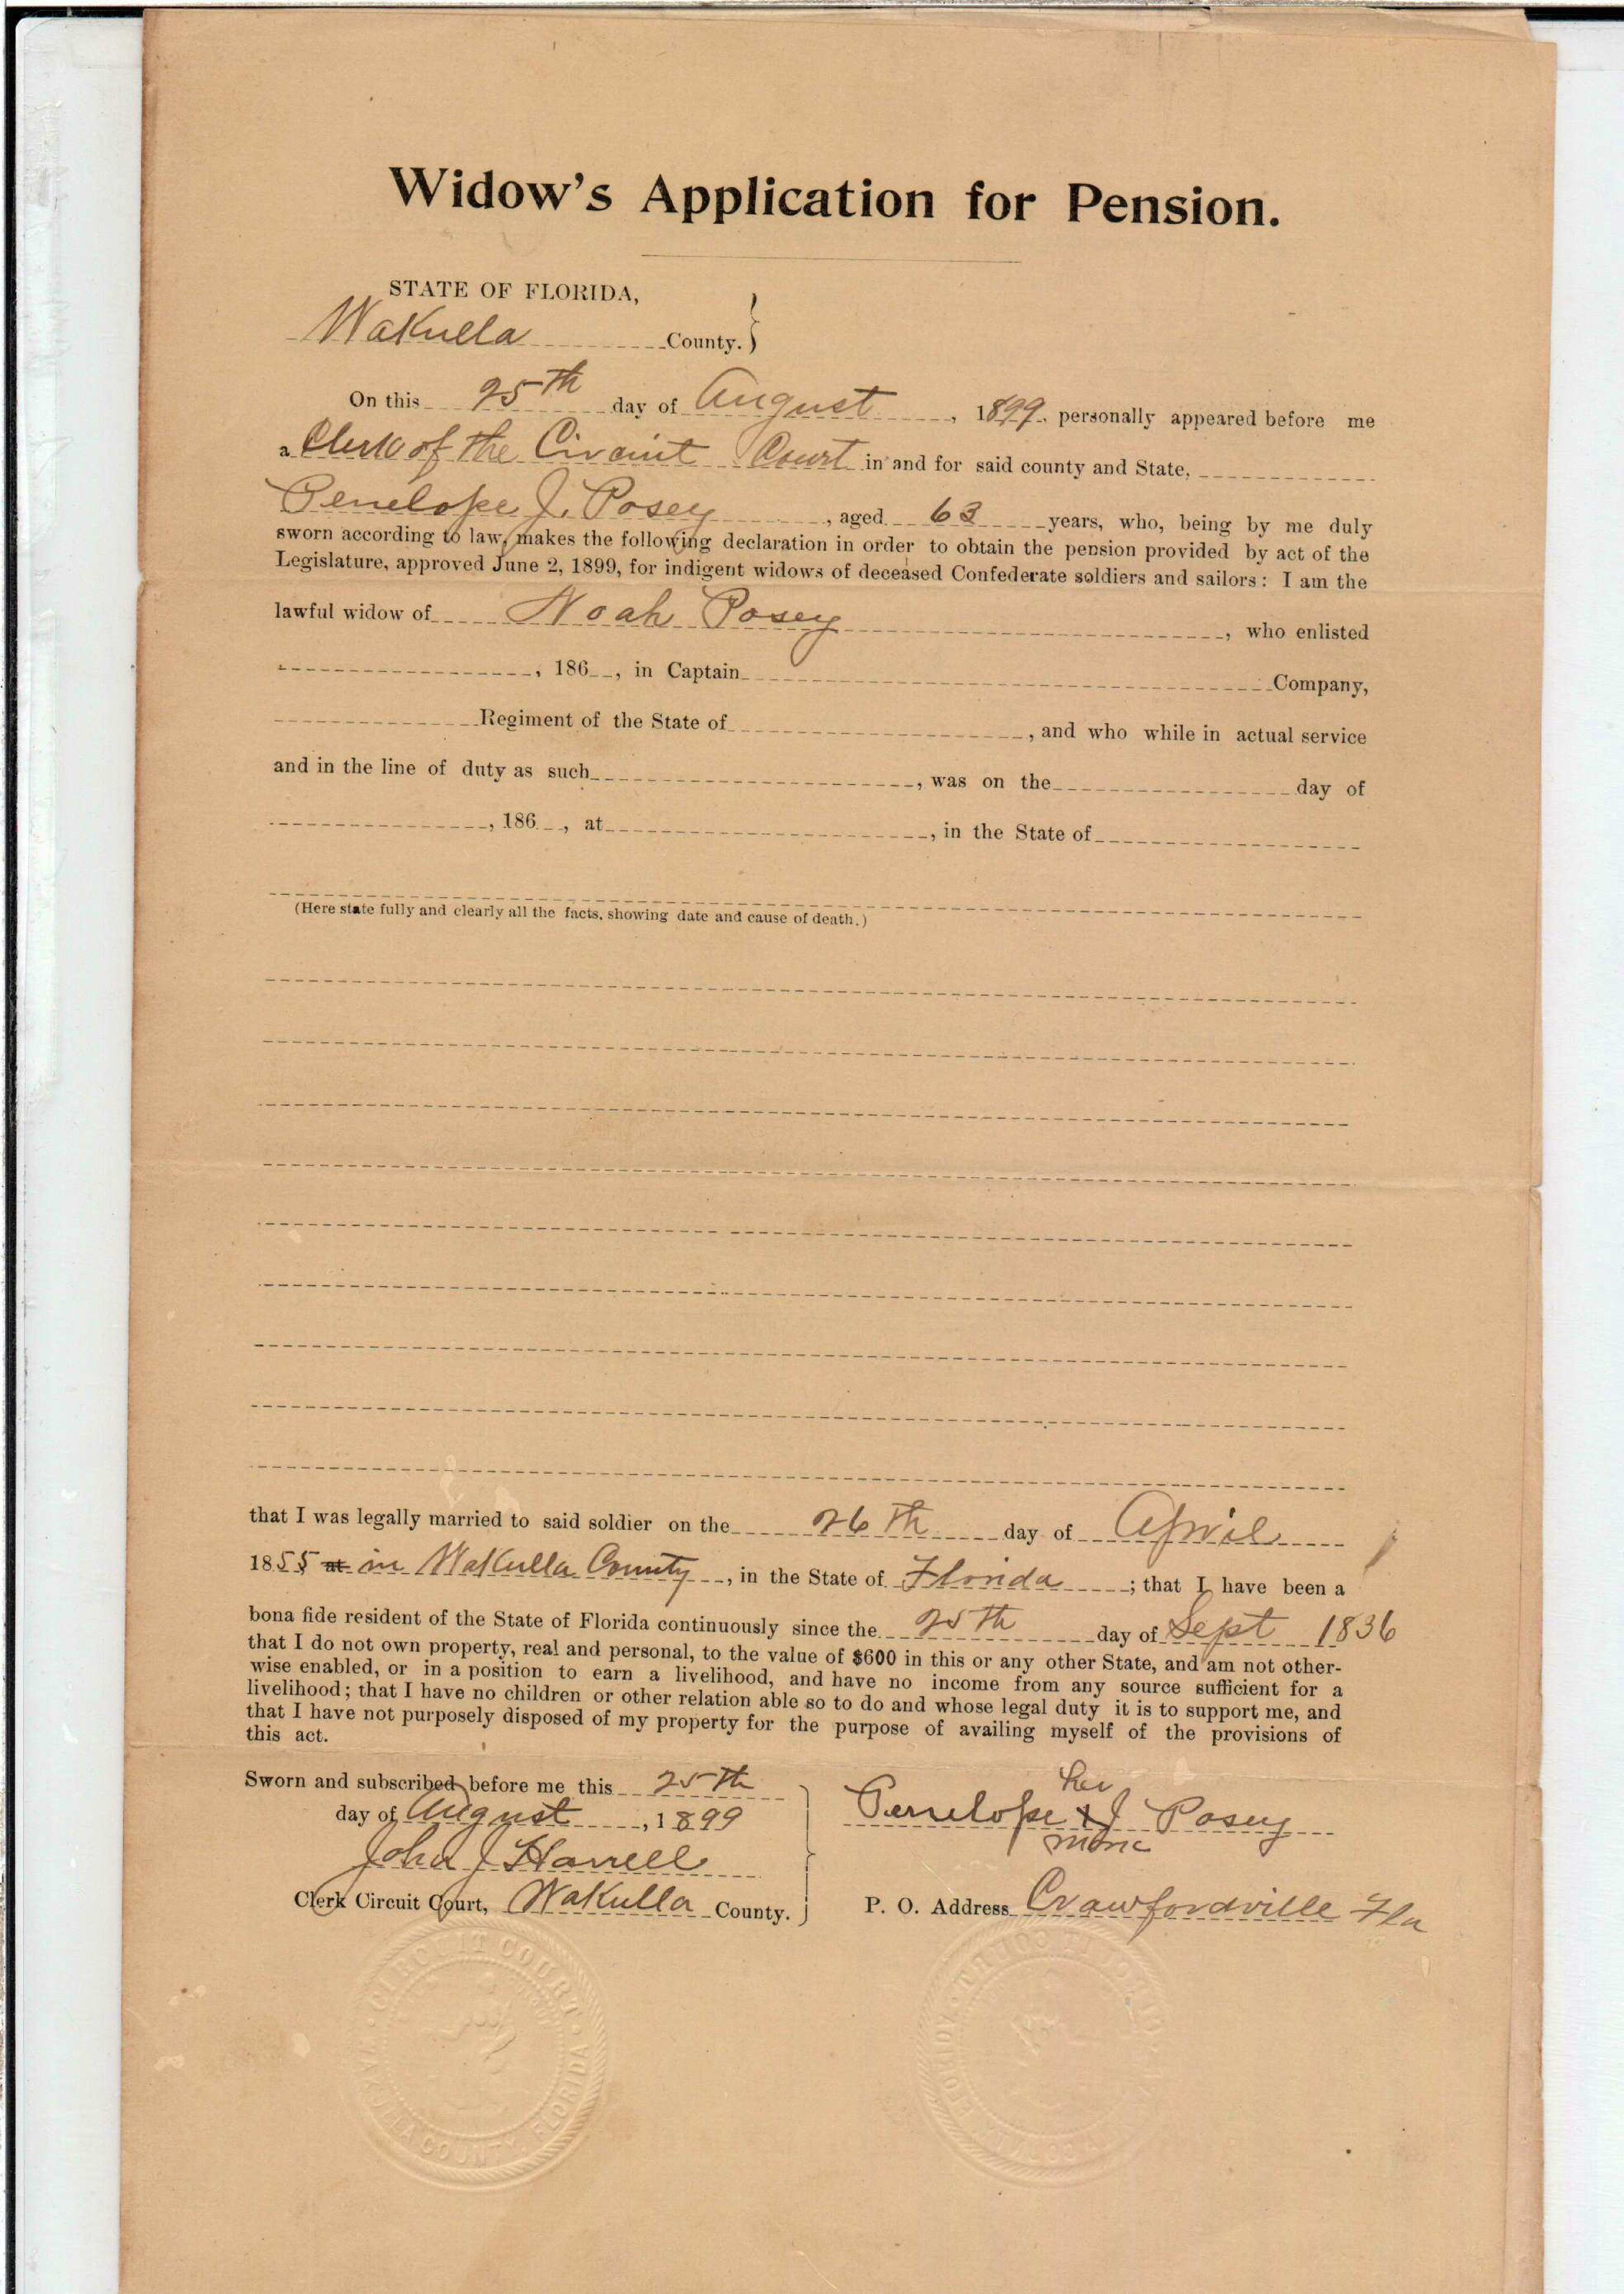 Widow's Application for Pension.
STATE OF FLORIDA,
Wakulla County.
On this 25th day of August, 1899, personally appeared before me
a Clerk of the Circuit Court in and for said county and State,
Penelope J. Posey, aged 63 years, who, being by me duly
sworn according to law, makes the following declaration in order to obtain the pension provided by act of the
Legislature, approved June 2, 1899, for indigent widows of deceased Confederate soldiers and sailors: I am the
lawful widow of Noah Posey, who enlisted
, 186 , in Captain Company,
Regiment of the State of , and who while in actual service
and in the line of duty as such , was on the day of
, 186 , at , in the State of
(Here state fully and clearly all the facts, showing date and cause of death.)
that I was legally married to said soldier on the 26th day of April
1855 at in Wakulla County, in the State of Florida; that I have been a
bona fide resident of the State of Florida continuously since the 25th day of Sept 1836
that I do not own property, real and personal, to the value of $600 in this or any other State, and am not other-
wise enabled, or in a position to earn a livelihood, and have no income from any source sufficient for a
livelihood; that I have no children or other relation able so to do and whose legal duty it is to support me, and
that I have not purposely disposed of my property for the purpose of availing myself of the provisions of
this act.
Sworn and subscribed before me this 25th
day of August, 1899
John J Harrell
Clerk Circuit Court, Wakulla County.
her
Penelope x J Posey
mark
P. O. Address Crawfordville Fla
CIRCUIT COURT
WAKULLA COUNTY, FLORIDA